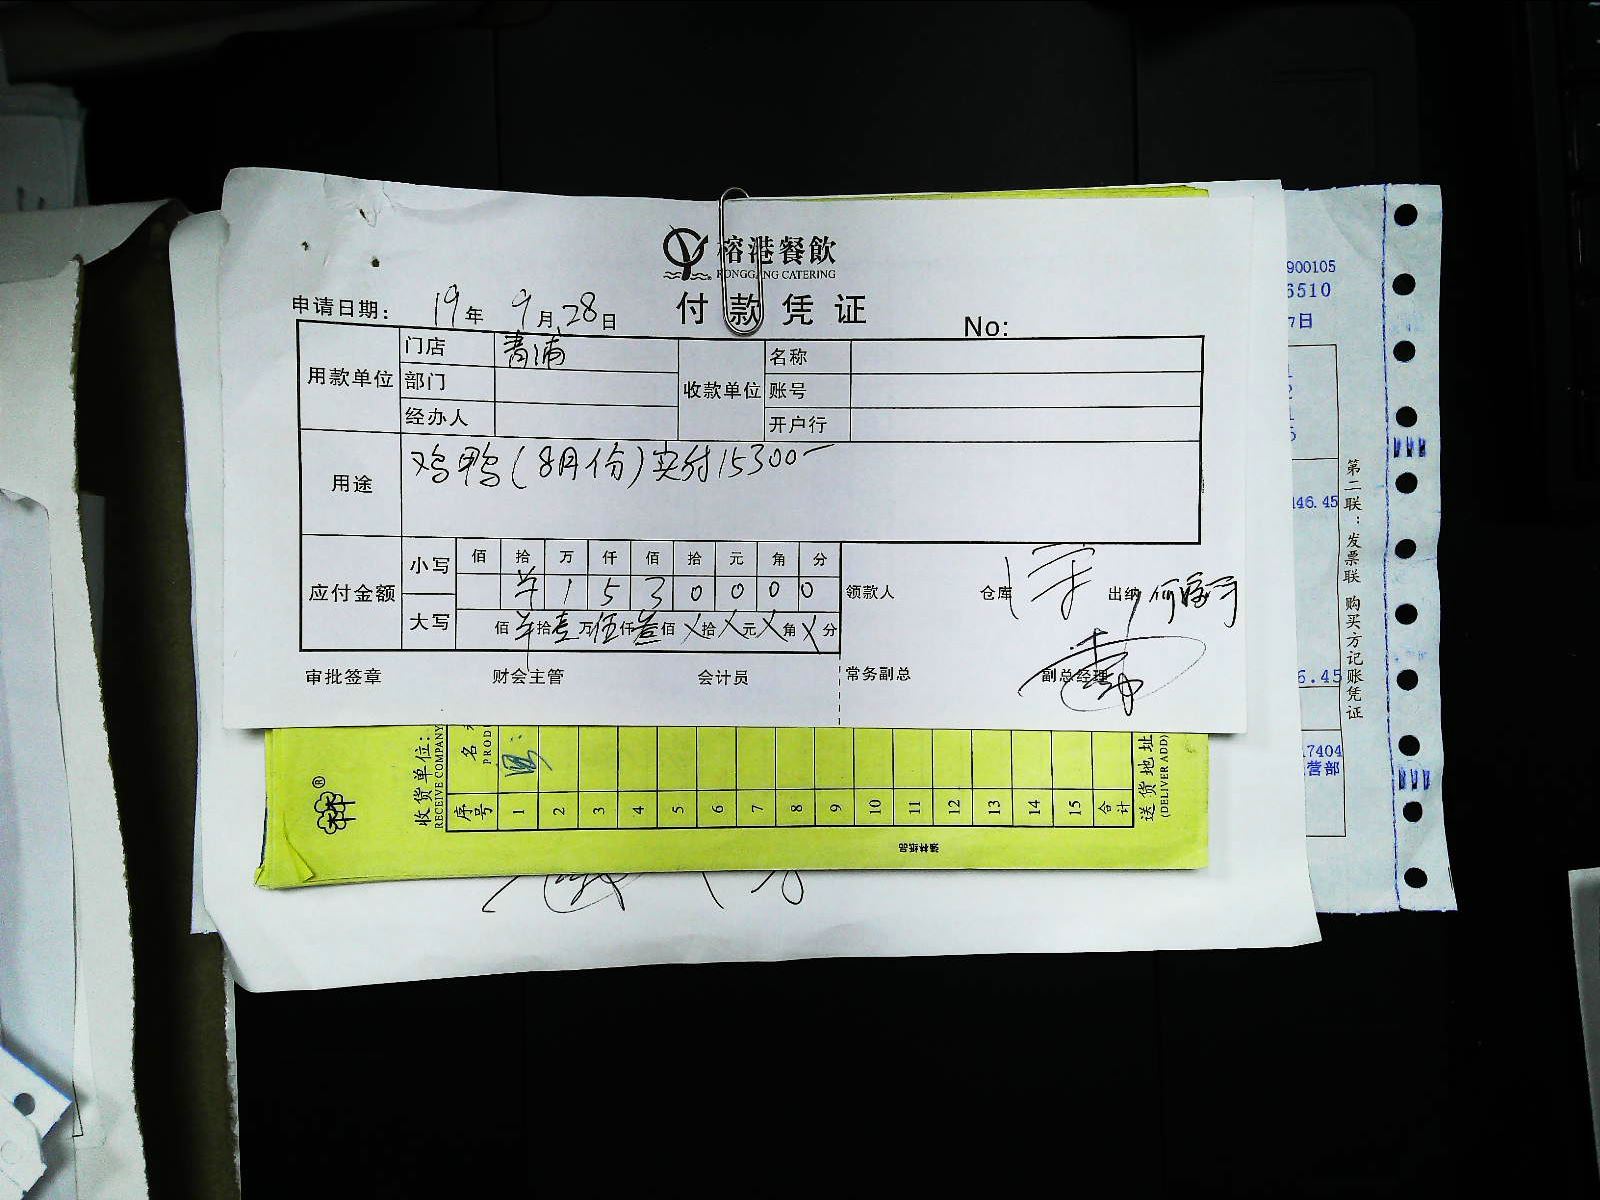 榕港餐飲
RONGGANG CATERING
付款凭证
申请日期： 19年 9月 28日
No:
用款单位 门店 青浦 收款单位 名称
部门 账号
经办人 开户行
用途 鸡鸭(8月份)实付15300一
应付金额 小写 佰 拾 万 仟 佰 拾 元 角 分
羊 1 5 3 0 0 0 0
领款人 仓库 出纳
大写 佰 羊 拾 壹 万 伍 仟 叁 佰 X 拾 X 元 X 角 X 分
审批签章 财会主管 会计员 常务副总 副总经理
收货单位：
RECEIVE COMPANY
序号 1 2 3 4 5 6 7 8 9 10 11 12 13 14 15 合计
送货地址
(DELIVER ADD)
强林纸品
900105
6510
7日
146.45
6.45
17404
营部
第二联：发票联 购买方记账凭证